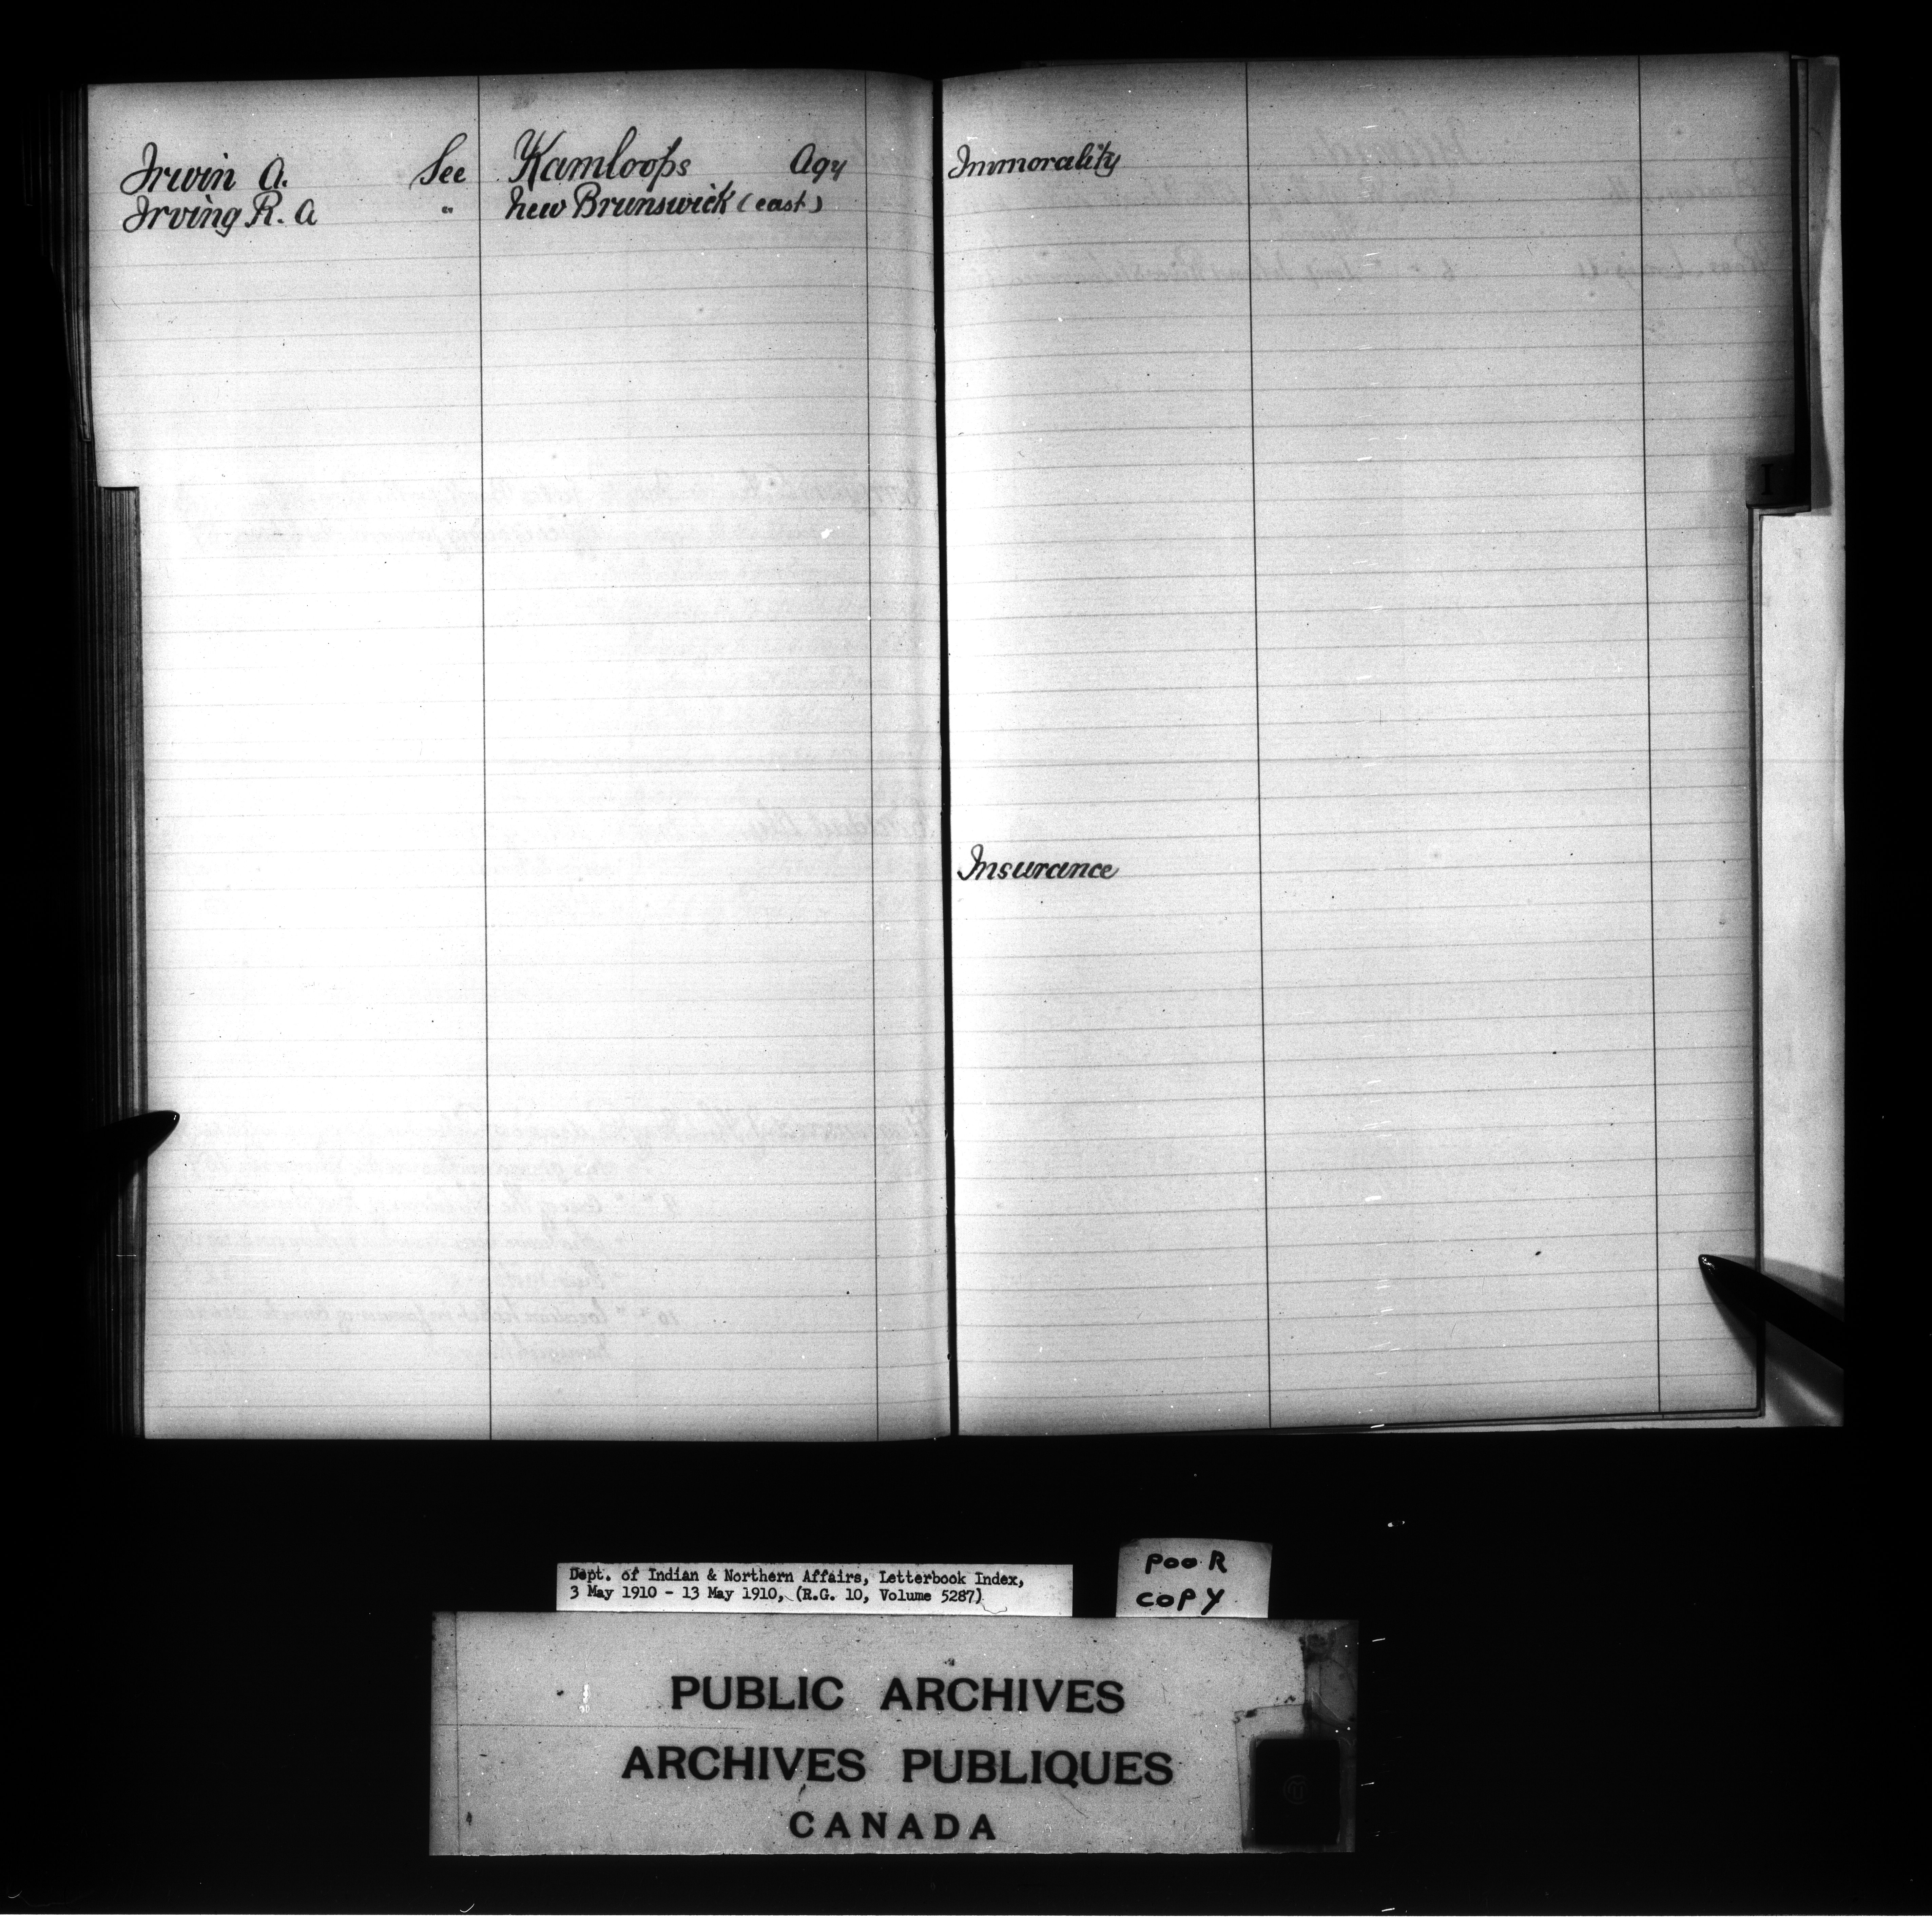 Irwin A. See Kamloops Agy
Irving R. A " New Brunswick (east)
Immorality
Insurance
I
Dept. of Indian & Northern Affairs, Letterbook Index,
3 May 1910 - 13 May 1910, (R.G. 10, Volume 5287)
POOR
COPY
PUBLIC ARCHIVES
ARCHIVES PUBLIQUES
CANADA